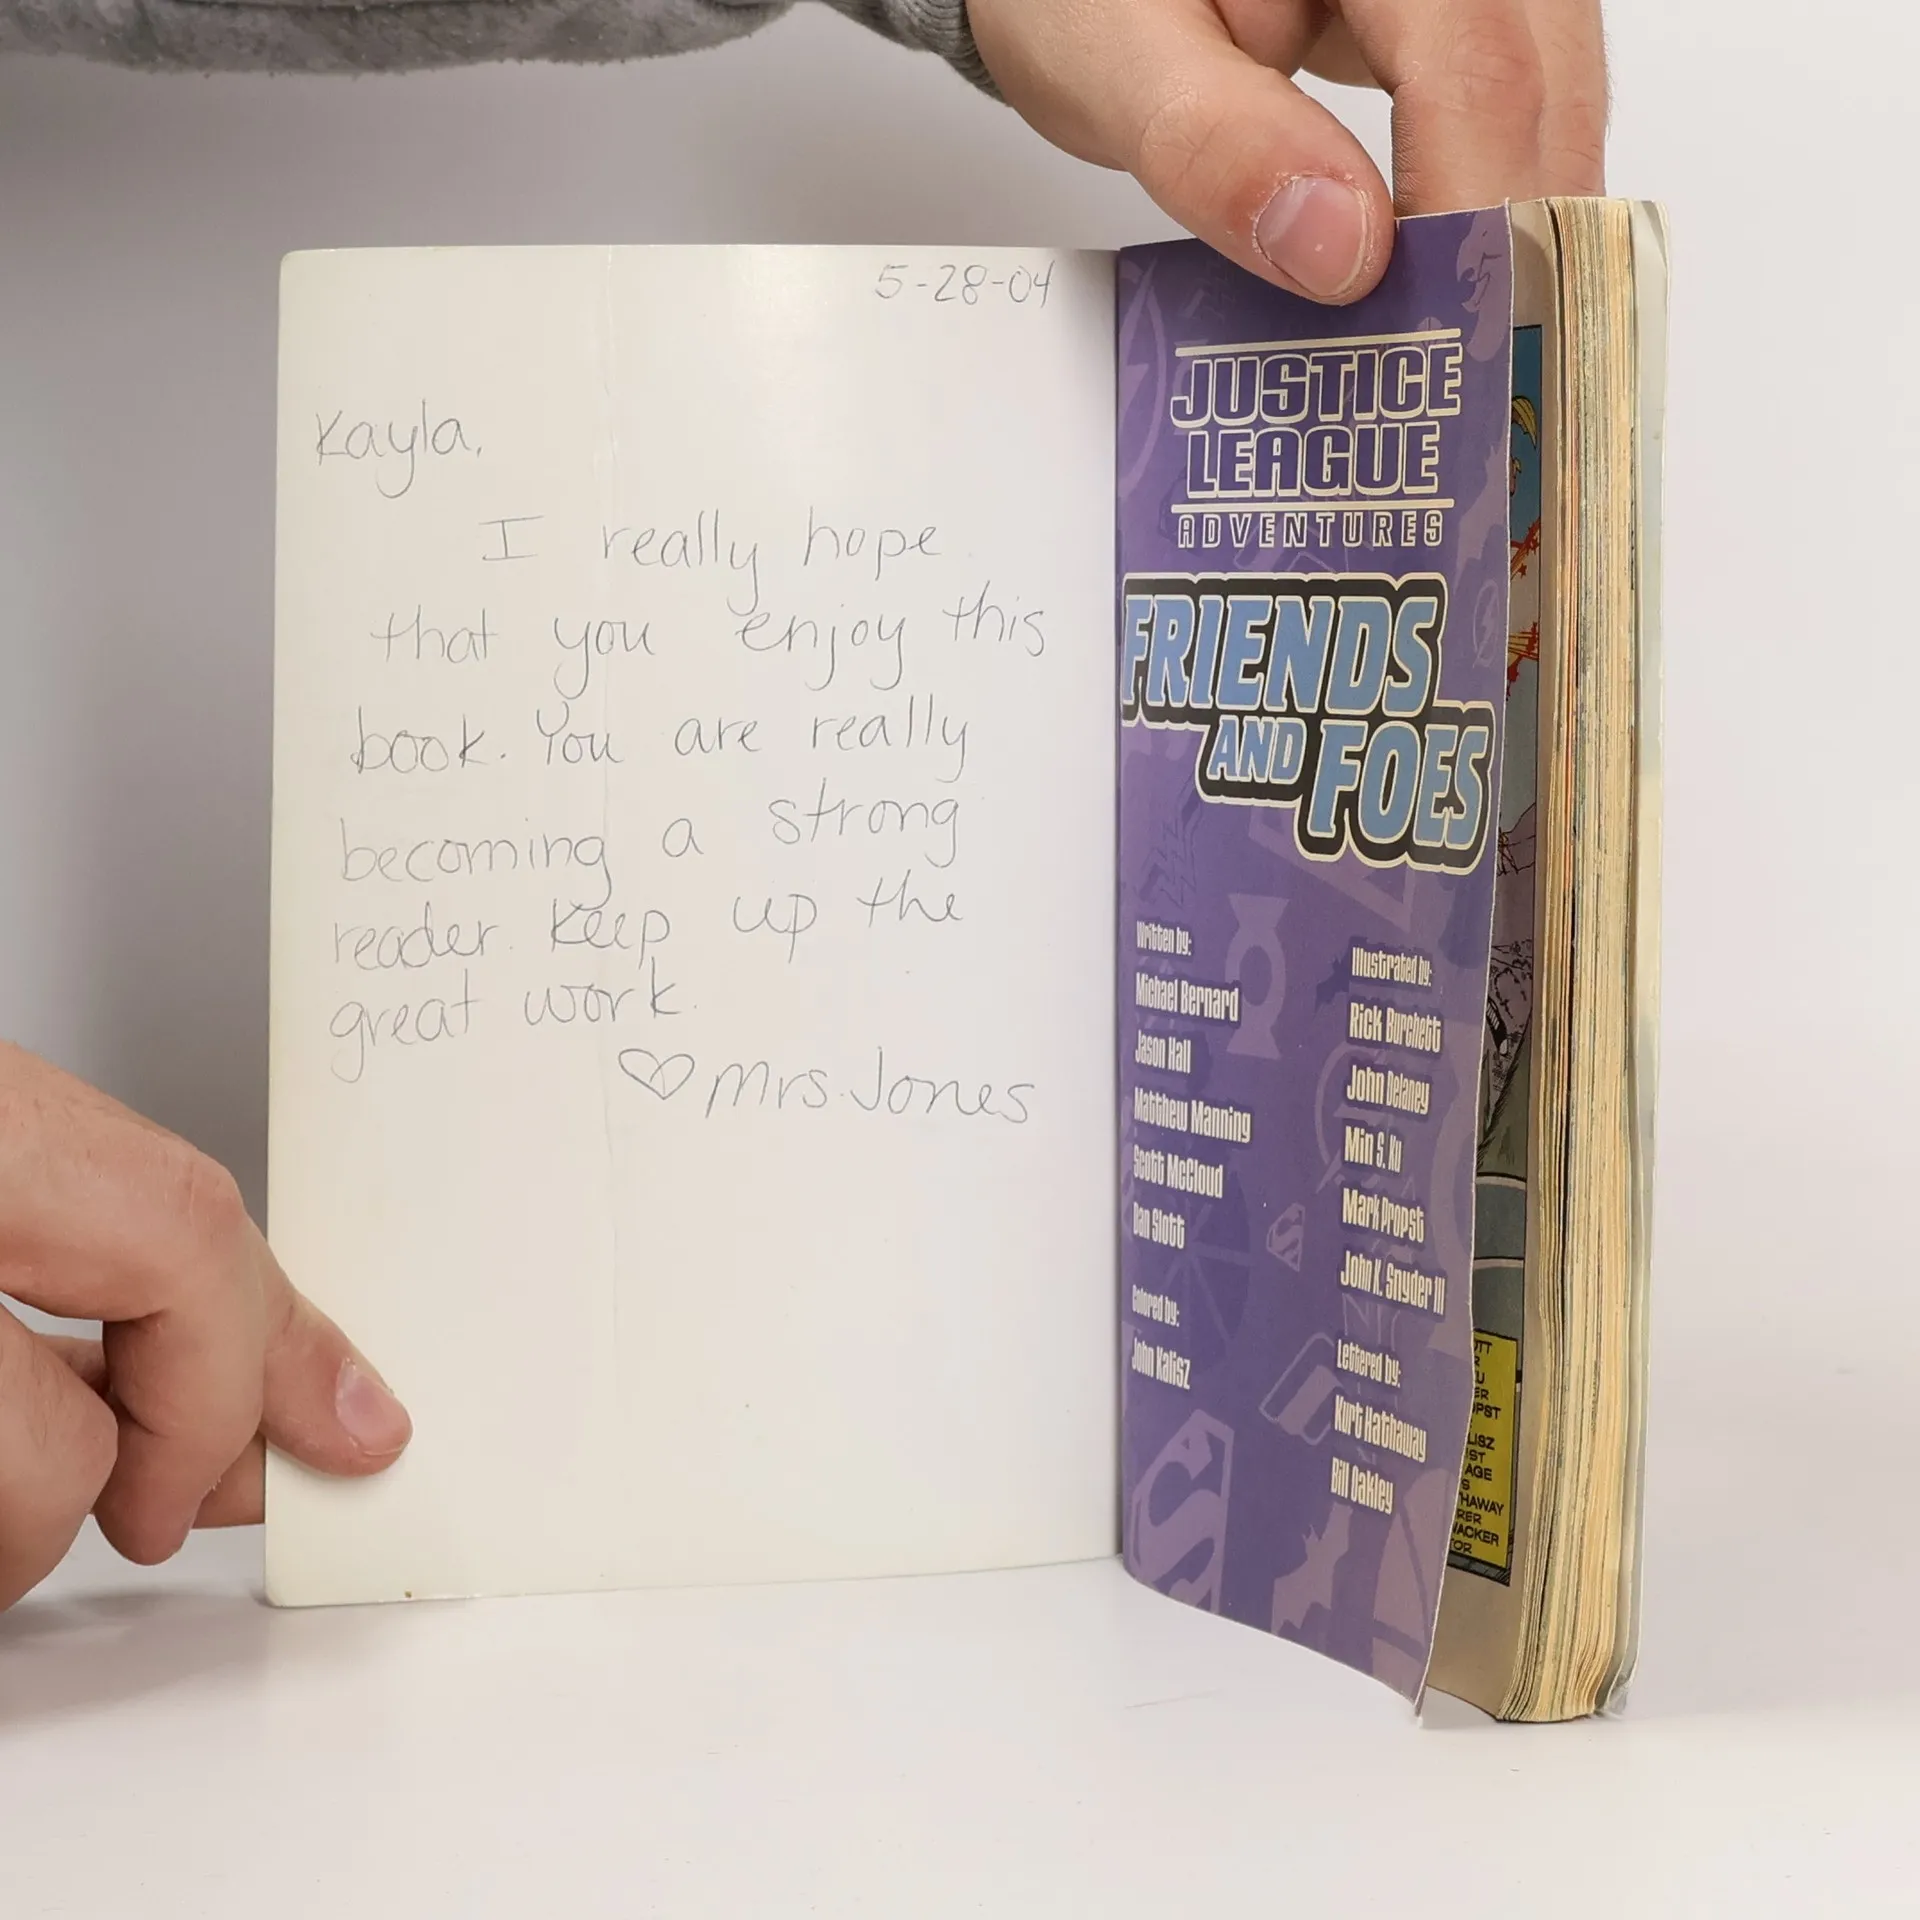 5-28-04
Kayla,
I really hope
that you enjoy this
book. You are really
becoming a strong
reader. Keep up the
great work.
♡ Mrs. Jones
JUSTICE
LEAGUE
ADVENTURES
FRIENDS
AND FOES
Written by:
Michael Bernard
Jason Hall
Matthew Manning
Scott McCloud
Dan Slott
Colored by:
John Kalisz
Illustrated by:
Rick Burchett
John Delaney
Min S. Ku
Mark Propst
John K. Snyder III
Lettered by:
Kurt Hathaway
Bill Oakley